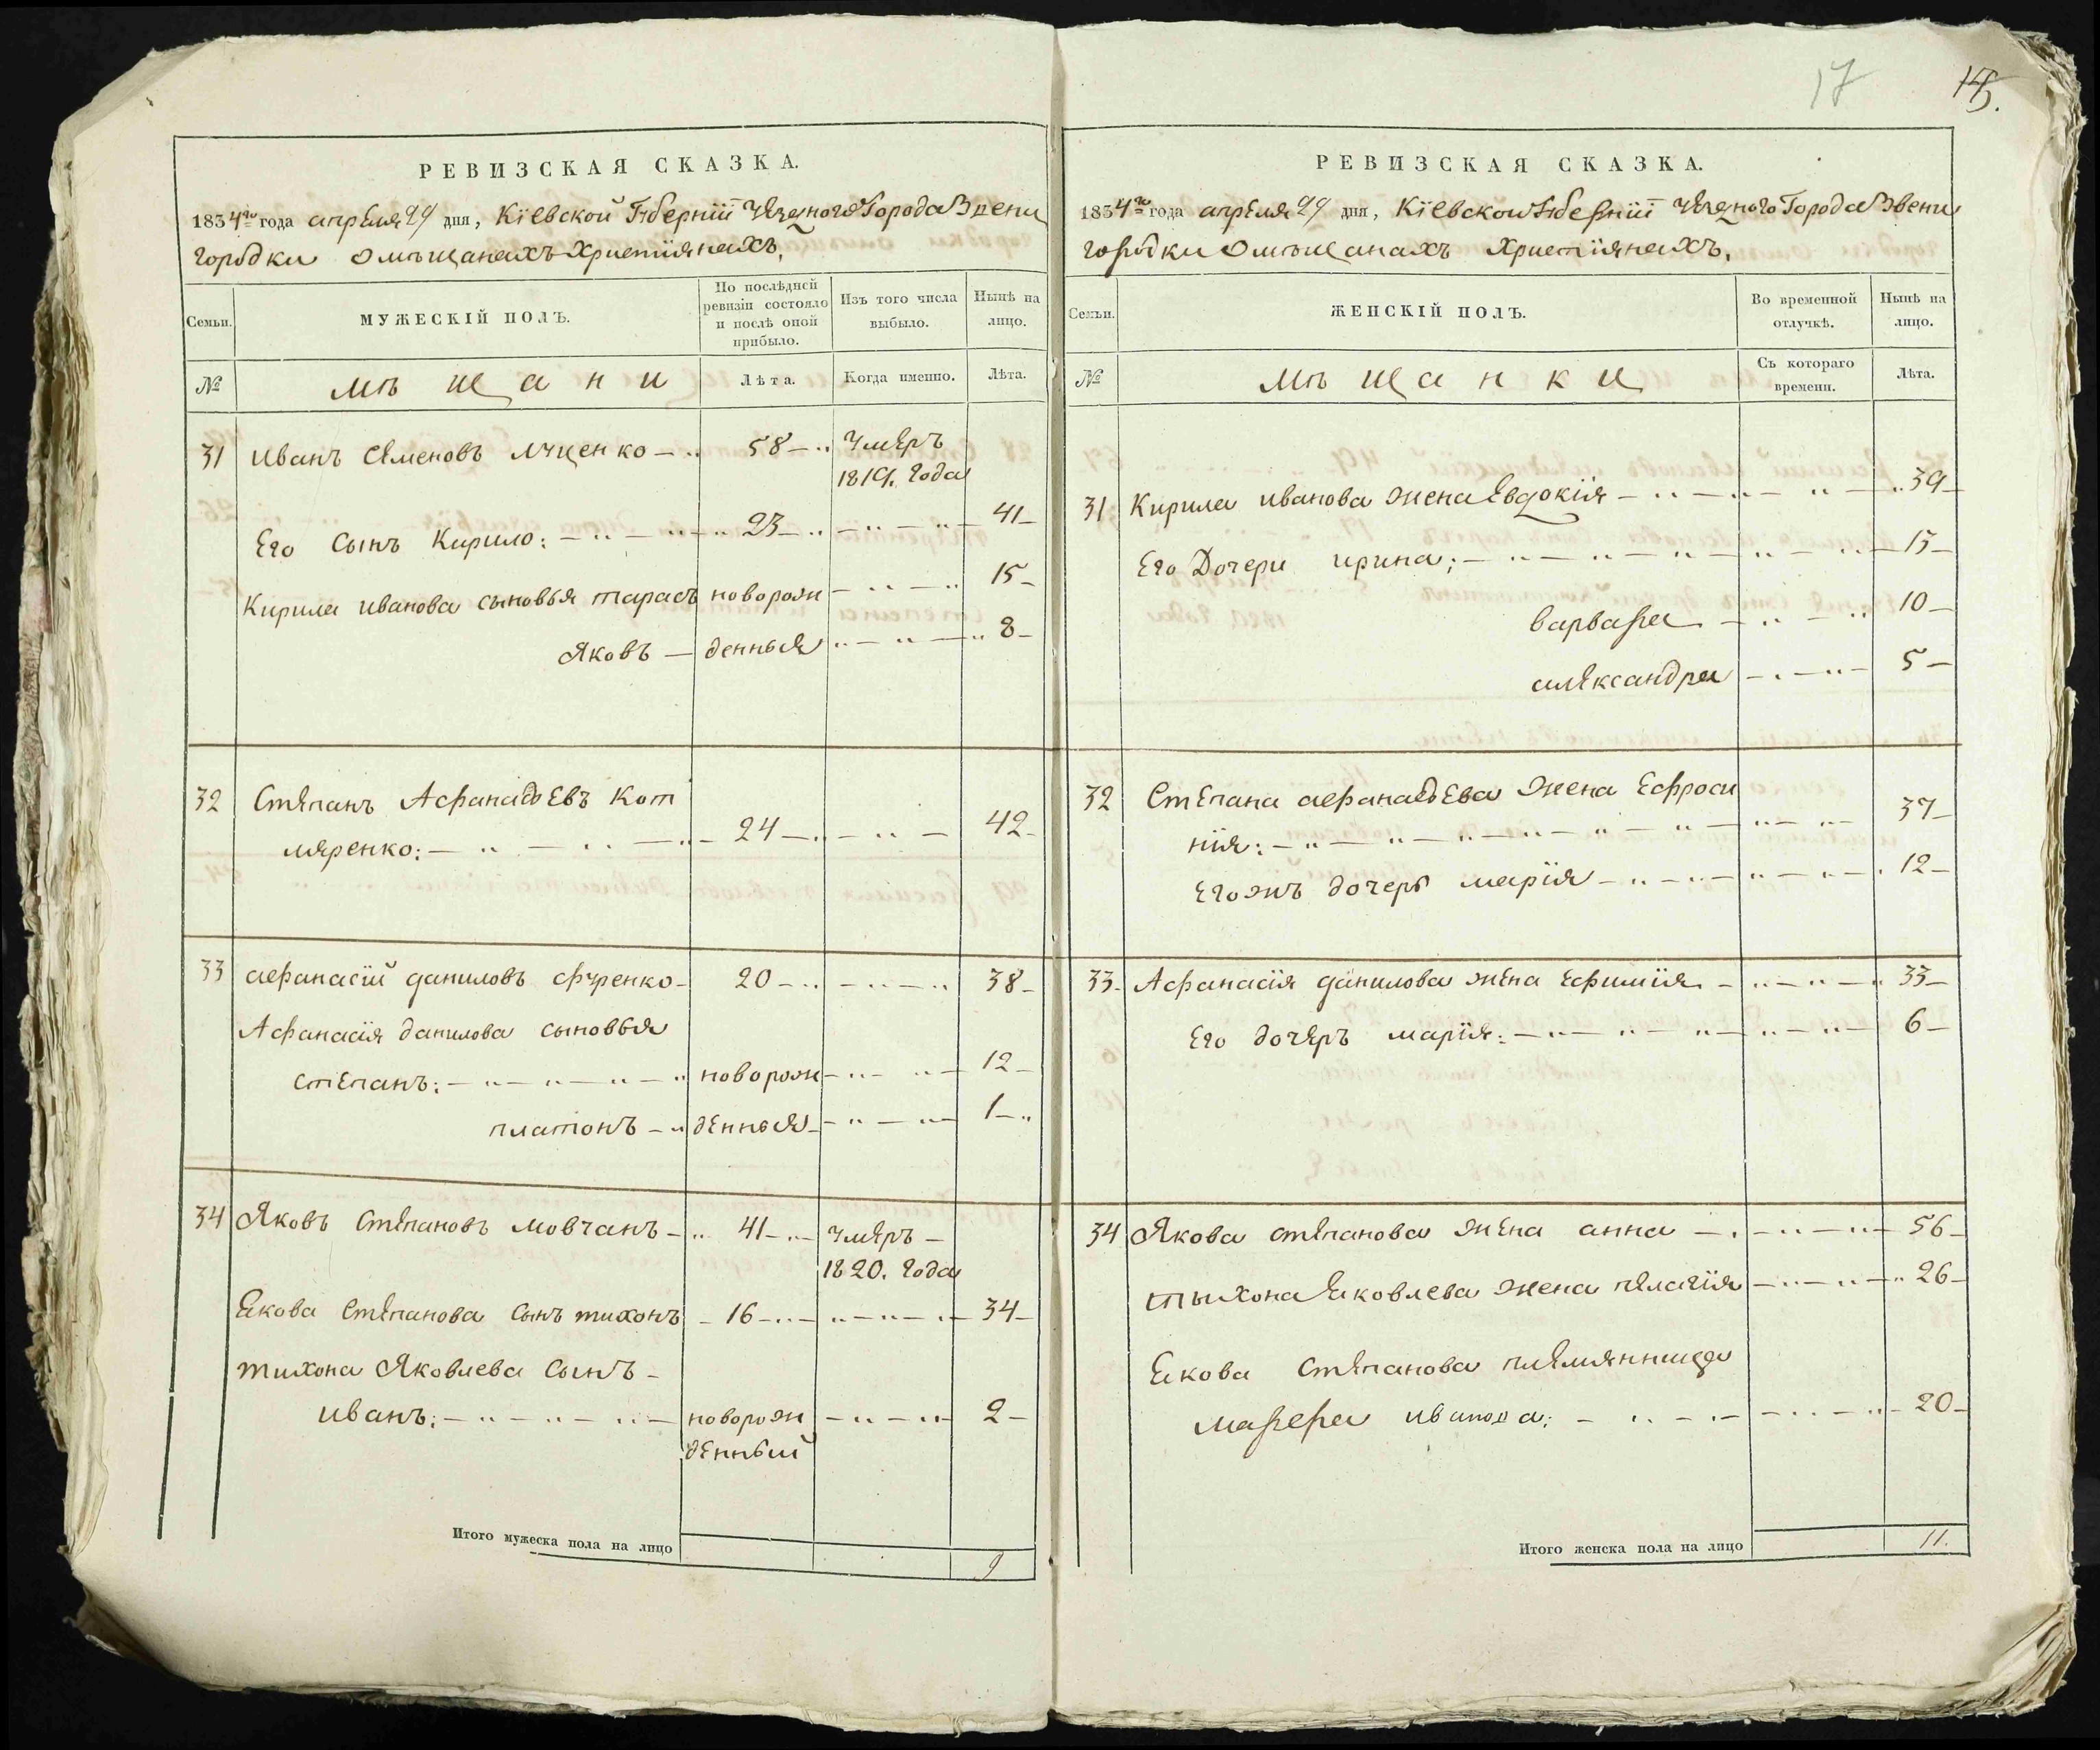 17
РЕВИЗСКАЯ СКАЗКА.
1834го года апреля 29 дня, Кіевской Губерніи Уезного Города Звени
городки о мѣщанахъ Христіянахъ.
Семьи.
МУЖЕСКІЙ ПОЛЪ.
По послѣдней ревизіи состояло и послѣ оной прибыло.
Изъ того числа выбыло.
Нынѣ на лицо.
№
мѣщани
Лѣта.
Когда именно.
Лѣта.
31 Иванъ Семеновъ Луценко 58 умеръ
1819. года
Его сынъ Кирило: 23 41
Кирила Иванова сыновья Тарасъ новорож 15
Яковъ денныя 8
32 Степанъ Афанасьевъ Кот
ляренко: 24 42
33 Афанасій Даниловъ Фуренко 20 38
Афанасія Данилова сыновья
Степанъ: новорож 12
Платонъ денныя 1
34 Яковъ Степановъ Мовчанъ 41 умеръ
1820. года
Якова Степанова сынъ Тихонъ 16 34
Тихона Яковлева сынъ
Иванъ: новорож 2
денный
Итого мужеска пола на лицо 9
РЕВИЗСКАЯ СКАЗКА.
1834го года апреля 29 дня, Кіевской Губерніи Уезного Города Звени
городки о мѣщанахъ Христіянахъ.
Семьи.
ЖЕНСКІЙ ПОЛЪ.
Во временной отлучкѣ.
Нынѣ на лицо.
№
мѣщанки
Съ котораго времени.
Лѣта.
31 Кирила Иванова жена Евдокія 39
Его Дочери Ирина; 13
Варвара 10
Александра 5
32 Степана Афанасьева жена Ефроси
нія: 37
Его жъ дочерь Марія 12
33 Афанасія Данилова жена Ефимія 33
Его дочеръ Марія: 6
34 Якова Степанова жена Анна 56
Тыхона Яковлева жена Пелагія 26
Якова Степанова племянница
Марера Иванова: 20
Итого женска пола на лицо 11.